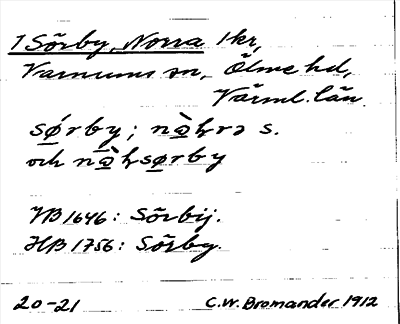 1 Sörby, Norra 1 kr,
Varnums sn, Ölme hd,
Värml. län.
sǿrby; nà̠hrə s.
och nà̠hsø̠rby
JB 1646: Sörbij.
HB 1756: Sörby.
20-21 C.W. Bromander 1912